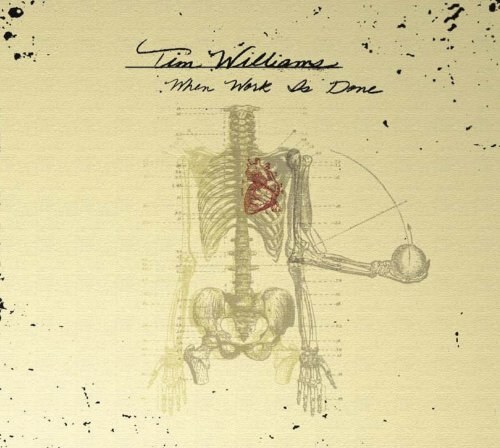 Tim Williams
When Work Is Done